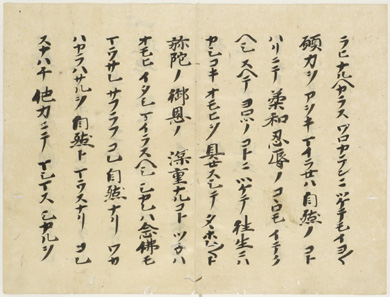 ラヒナルヘカラス ワロカランニ ツケテモ イヨ〱
願力ヲ アフキ マイラセハ 自然ノ コト
ハリニテ 柔和忍辱ノ コヽロモ イテク
ヘシ スヘテ ヨロツノ コトニ ツケテ 往生ニハ
カシコキ オモヒヲ 具セスシテ タヽ ホレ〱ト
弥陀ノ 御恩ノ 深重ナルコト ツネハ
オモヒイタシ マイラスヘシ シカレハ 念佛モ
マウサレ サフラフ コレ 自然ナリ ワカ
ハカラハサルヲ 自然ト マウスナリ コレ
スナハチ 他力ニテ マシマス シカルヲ